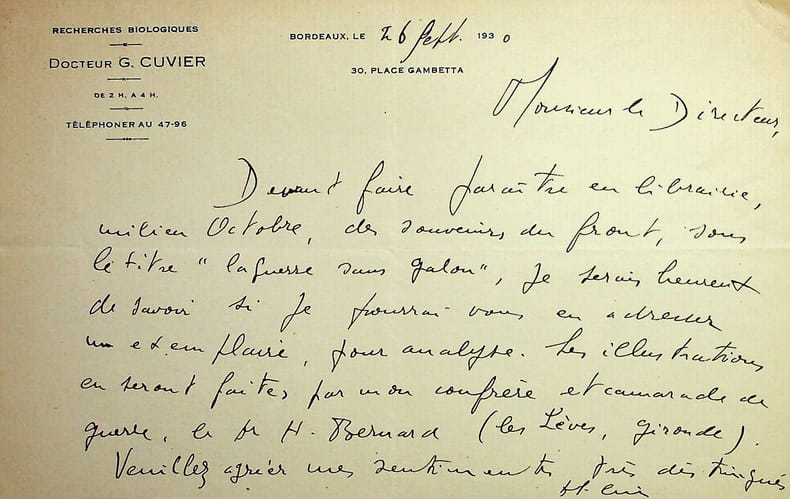 RECHERCHES BIOLOGIQUES
DOCTEUR G. CUVIER
DE 2 H. A 4 H.
TÉLÉPHONER AU 47-96
BORDEAUX, LE 26 Sept. 1930
30, PLACE GAMBETTA
Monsieur le Directeur,
Devant faire paraître en librairie,
milieu Octobre, des souvenirs du front, sous
le titre "la guerre sans galon", je serais heureux
de savoir si je pourrai vous en adresser
un exemplaire, pour analyse. Les illustrations
en seront faites par mon confrère et camarade de
guerre, le Dr H. Bernard (les Lèves, Gironde).
Veuillez agréer mes sentiments très distingués